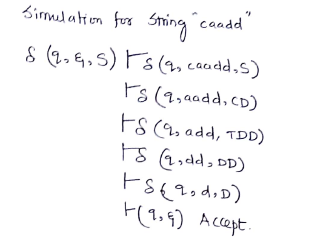 Simulation for string "caadd"
δ (q, ε, S) ⊢ δ (q, caadd, S)
⊢ δ (q, aadd, CD)
⊢ δ (q, add, TDD)
⊢ δ (q, dd, DD)
⊢ δ (q, d, D)
⊢ (q, ε) Accept.